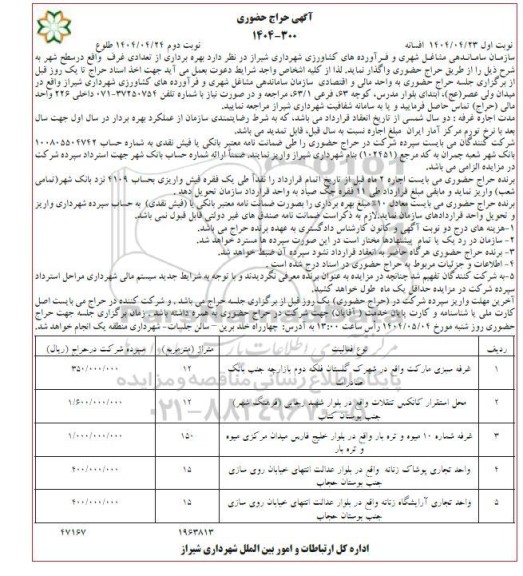 آگهی حراج حضوری
۱۴۰۴-۳۰۰
نوبت اول ۱۴۰۴/۰۴/۲۳ افسانه
نوبت دوم ۱۴۰۴/۰۴/۲۴ طلوع
سازمان ساماندهی مشاغل شهری و فرآورده های کشاورزی شهرداری شیراز در نظر دارد بهره برداری از تعدادی غرف واقع درسطح شهر به
شرح ذیل را از طریق حراج حضوری واگذار نماید. لذا از کلیه اشخاص واجد شرایط دعوت بعمل می آید جهت اخذ اسناد حراج تا یک روز قبل
از برگزاری جلسه حراج حضوری به واحد مالی و اقتصادی سازمان ساماندهی مشاغل شهری و فرآورده های کشاورزی شهرداری شیراز واقع در
میدان ولی عصر(عج)، ابتدای بلوار مدرس، کوچه ۶۳ فرعی ۶۳/۱ مراجعه و در صورت نیاز با شماره تلفن ۳۷۲۵۰۷۵۴-۰۷۱ داخلی ۲۲۶ واحد
مالی (حراج) تماس حاصل فرمایید و یا به سامانه شفافیت شهرداری شیراز مراجعه نمایید.
مدت اجاره غرفه : دو سال شمسی از تاریخ انعقاد قرارداد می باشد، که به شرط رضایتمندی سازمان از عملکرد بهره بردار در سال اول جهت سال
بعد با نرخ تورم مرکز آمار ایران مبلغ اجاره نسبت به سال قبل، قابل تمدید می باشد.
شرکت کنندگان می بایست سپرده شرکت در حراج حضوری را طی ضمانت نامه معتبر بانکی یا فیش نقدی به شماره حساب ۱۰۰۸۰۵۵۰۴۷۴۲
بانک شهر شعبه چمران به کد مرجع (۱۰۲۴۵۱) بنام شهرداری شیراز واریز نمایند. ضمناً ارائه شماره حساب بانک شهر جهت استرداد سپرده شرکت
در مزایده الزامی می باشد.
برنده حراج حضوری می بایست اجاره ۲ ماه قبل از تاریخ اتمام قرارداد را نقداً طی یک فقره فیش واریزی بحساب ۴۱۰۹ نزد بانک شهر(تمامی
شعب) واریز نماید و مابقی مبلغ قرارداد طی ۱۱ فقره چک صیاد به واحد قرارداد سازمان تحویل دهد.
برنده حراج حضوری می بایست معادل ۱۰٪ مبلغ بهره برداری را بصورت ضمانت نامه معتبر بانکی یا (فیش نقدی) به حساب سپرده شهرداری واریز
و تحویل واحد قراردادهای سازمان نماید.لازم به ذکراست ضمانت نامه صندق های غیر دولتی قابل قبول نمی باشد.
۱-هزینه های درج دو نوبت آگهی و کانون کارشناس دادگستری به عهده برنده حراج می باشد.
۲- سازمان در رد یک یا تمام پیشنهادها مختار است در این صورت سپرده ها مسترد خواهد شد.
۳- برنده حراج حضوری هرگاه حاضر به انعقاد قرارداد نشود سپرده آن ضبط خواهد شد.
۴- اطلاعات و جزئیات مربوط به حراج حضوری در اسناد درج شده است.
۵-به شرکت کنندگان تفهیم شد چنانچه در مزایده به عنوان برنده معرفی نگردیدند و با توجه به شرایط جدید سیستم مالی شهرداری مراحل استرداد
سپرده شرکت در مزایده حداقل یک ماه طول خواهد کشید.
آخرین مهلت واریز سپرده شرکت در (حراج حضوری) یک روز قبل از برگزاری جلسه حراج می باشد . و شرکت کننده در حراج می بایست اصل
کارت ملی یا شناسنامه و کارت پایان خدمت (آقایان) جهت شرکت در حراج حضوری به همره داشته باشد. زمان برگزاری جلسه جهت حراج
حضوری روز شنبه مورخ ۱۴۰۴/۰۵/۰۴ راس ساعت ۱۳:۰۰ به آدرس: چهارراه خلد برین – سالن جلسات- شهرداری منطقه یک انجام خواهد شد.
ردیف نوع فعالیت متراژ (مترمربع) سپرده شرکت درحراج (ریال)
۱ غرفه سبزی مارکت واقع در شهرک گلستان فلکه دوم بازارچه جنب بانک صادرات ۱۲ ۳۵۰/۰۰۰/۰۰۰
۲ محل استقرار کانکس تنقلات واقع در بلوار شهید رجایی (فرهنگ شهر) جنب بوستان کتاب ۱۲ ۱/۶۰۰/۰۰۰/۰۰۰
۳ غرفه شماره ۱۰ میوه و تره بار واقع در بلوار خلیج فارس میدان مرکزی میوه و تره بار ۱۵۰ ۱/۰۰۰/۰۰۰/۰۰۰
۴ واحد تجاری پوشاک زنانه واقع در بلوار عدالت انتهای خیابان روی سازی جنب بوستان حجاب ۱۵ ۴۰۰/۰۰۰/۰۰۰
۵ واحد تجاری آرایشگاه زنانه واقع در بلوار عدالت انتهای خیابان روی سازی جنب بوستان حجاب ۱۵ ۴۰۰/۰۰۰/۰۰۰
۱۹۶۳۸۱۳
۴۷۱۶۷
اداره کل ارتباطات و امور بین الملل شهرداری شیراز